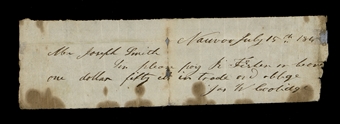 Nauvoo July 15th 184
Mr Joseph Smith
Sir please pay J. or bearer
one dollar fifty cts in trade and oblige
Jos W Coolidge